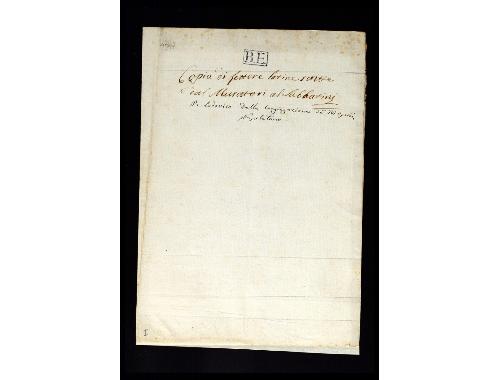 BE
Copia di lettere latine scritte
dal Muratori al Sabbatini
P. Lodovico della Congregazione de' Pii Operarj
Napoletano
I